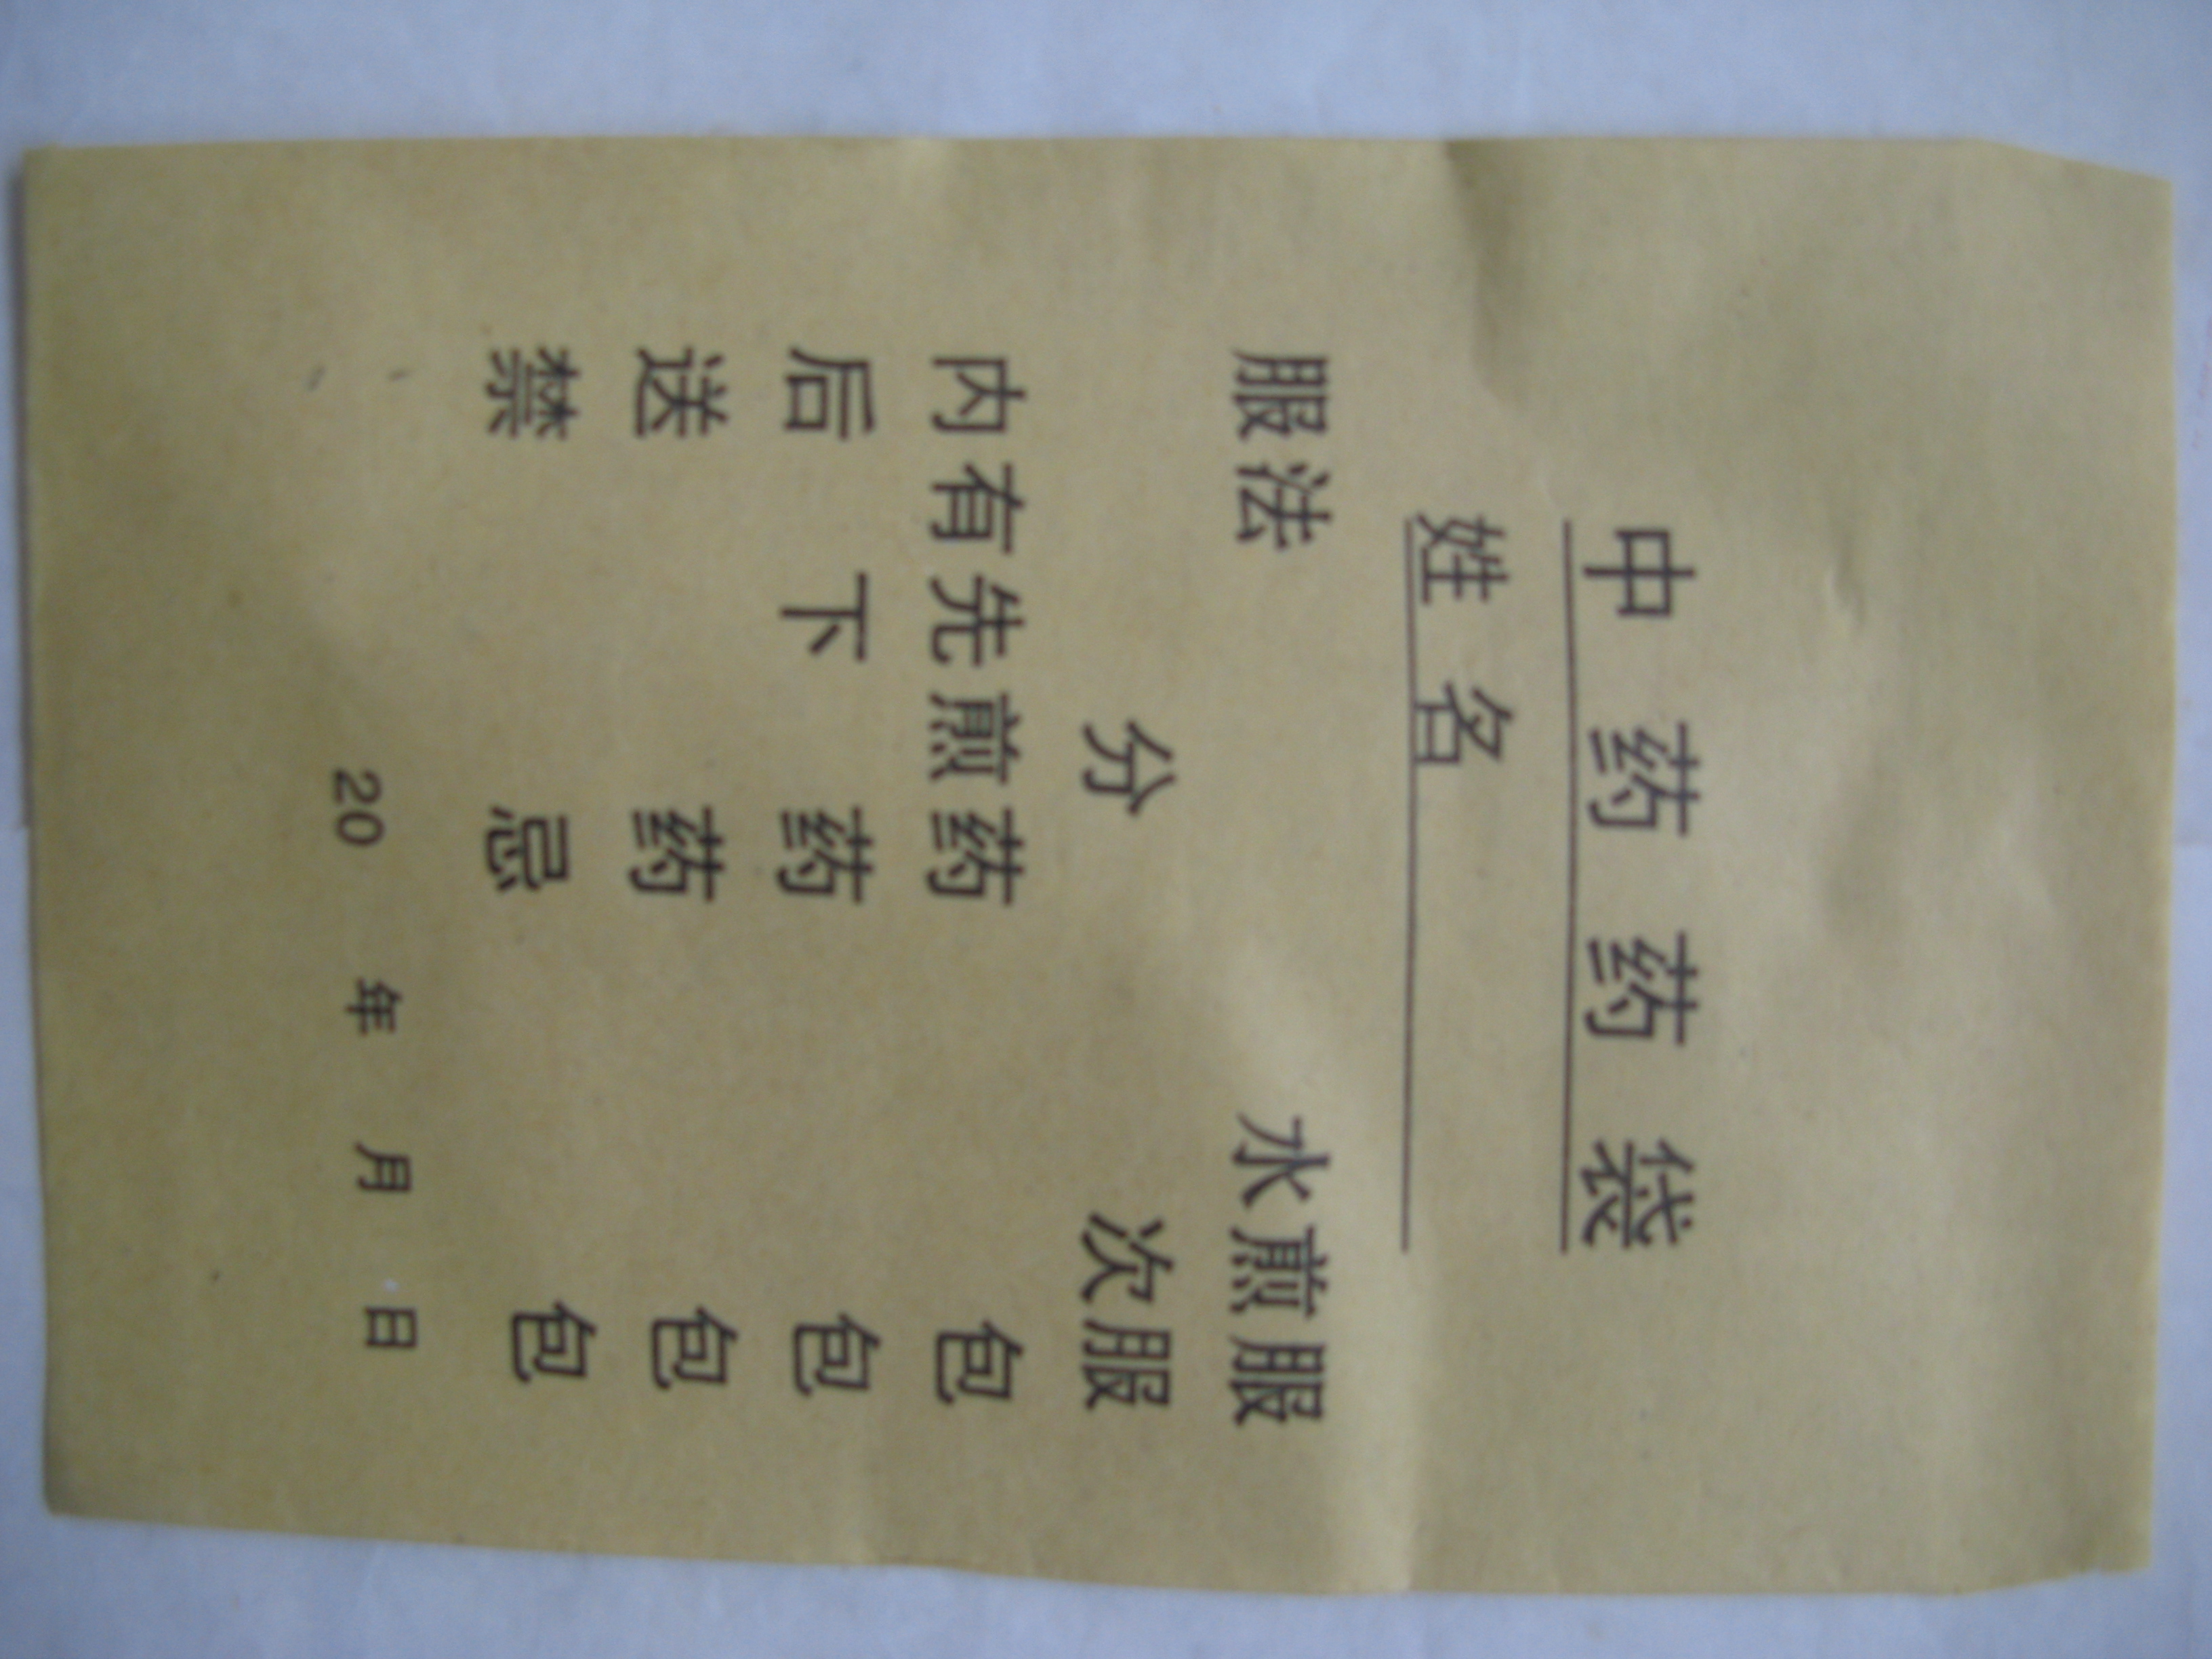 中药药袋
姓名
服法 水煎服
分 次服
内有先煎药 包
后下药 包
送药 包
禁忌 包
20 年 月 日